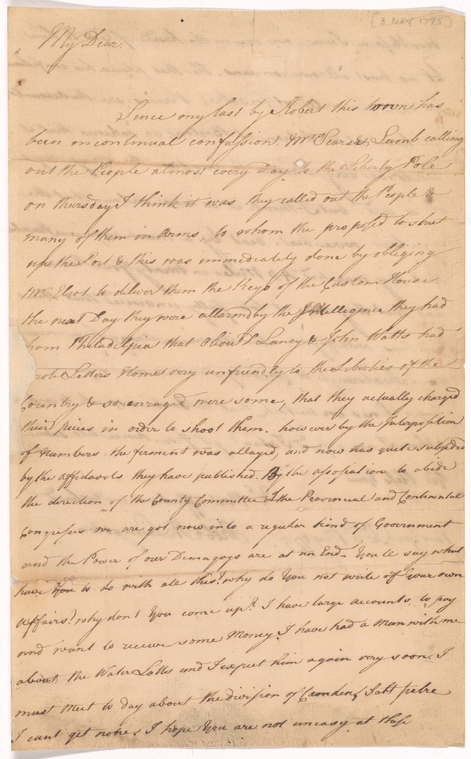 [3 May 1775]
My Dear.
Since my last by Robert this town has
been in continual confussion. Mr Sears & Lamb calling
out the People almost every Day to the Liberty Pole
on thursday I think it was they called out the People &
many of them in Arms, to whom the proposed to shut
up the Port & this was immediately done by obliging
Mr Eliot to deliver them the Keys of the Custom House
the next Day they were allarmed by the Intelligence they had
from Philadelpia that Abrm D Lancy & John Watts had
Letters Home very unfriendly to the Liberties of the
Country & so enraged were some, that they actually charged
their pieces in order to shoot them. however by the Interposition
of Numbers the ferment was allayed, and now has quite subsided
by the affidavits they have published. By the assosiation to abide
the direction of the County Committee & the Provincial and Continental
Congress we are got now into a regular kind of Government
and the Power of our Demagogs are at an End. Youle say what
have You to do with all this! why do You not write of your own
Affairs? why don't You come up? I have large accounts to pay
and want to receive some Money. I have had a Man with me
about the Water Lotts and I expect him again very soon. I
must meet to day about the division of Camden, Salt petre
I cant get nohes I hope You are not uneasy at these